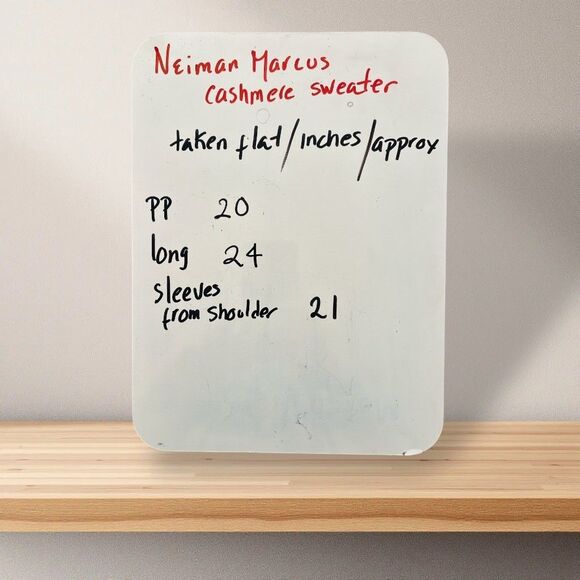 Neiman Marcus
cashmere sweater
taken flat/inches/approx
PP 20
long 24
sleeves
from shoulder 21